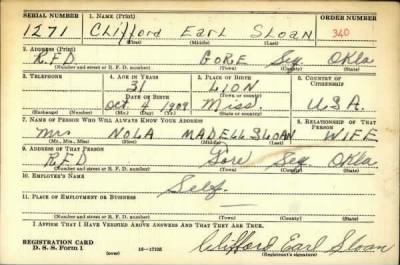 SERIAL NUMBER 1. NAME (Print) ORDER NUMBER
1271 Clifford Earl Sloan 340
(First) (Middle) (Last)
2. ADDRESS (Print)
R.F.D. GORE Seq. Okla
(Number and street or R. F. D. number) (Town) (County) (State)
3. TELEPHONE 4. AGE IN YEARS 5. PLACE OF BIRTH 6. COUNTRY OF CITIZENSHIP
31 LION
DATE OF BIRTH (Town or county)
Oct 4 1909 Miss. U.S.A.
(Exchange) (Number) (Mo.) (Day) (Yr.) (State or country)
7. NAME OF PERSON WHO WILL ALWAYS KNOW YOUR ADDRESS 8. RELATIONSHIP OF THAT PERSON
Mrs NOLA MADELL SLOAN WIFE
(Mr., Mrs., Miss) (First) (Middle) (Last)
9. ADDRESS OF THAT PERSON
R.F.D. Gore Seq. Okla
(Number and street or R. F. D. number) (Town) (County) (State)
10. EMPLOYER'S NAME
Self.
11. PLACE OF EMPLOYMENT OR BUSINESS
(Number and street or R. F. D. number) (Town) (County) (State)
I AFFIRM THAT I HAVE VERIFIED ABOVE ANSWERS AND THAT THEY ARE TRUE.
REGISTRATION CARD
D. S. S. Form 1 (over) 16—17105 Clifford Earl Sloan
(Registrant's signature)